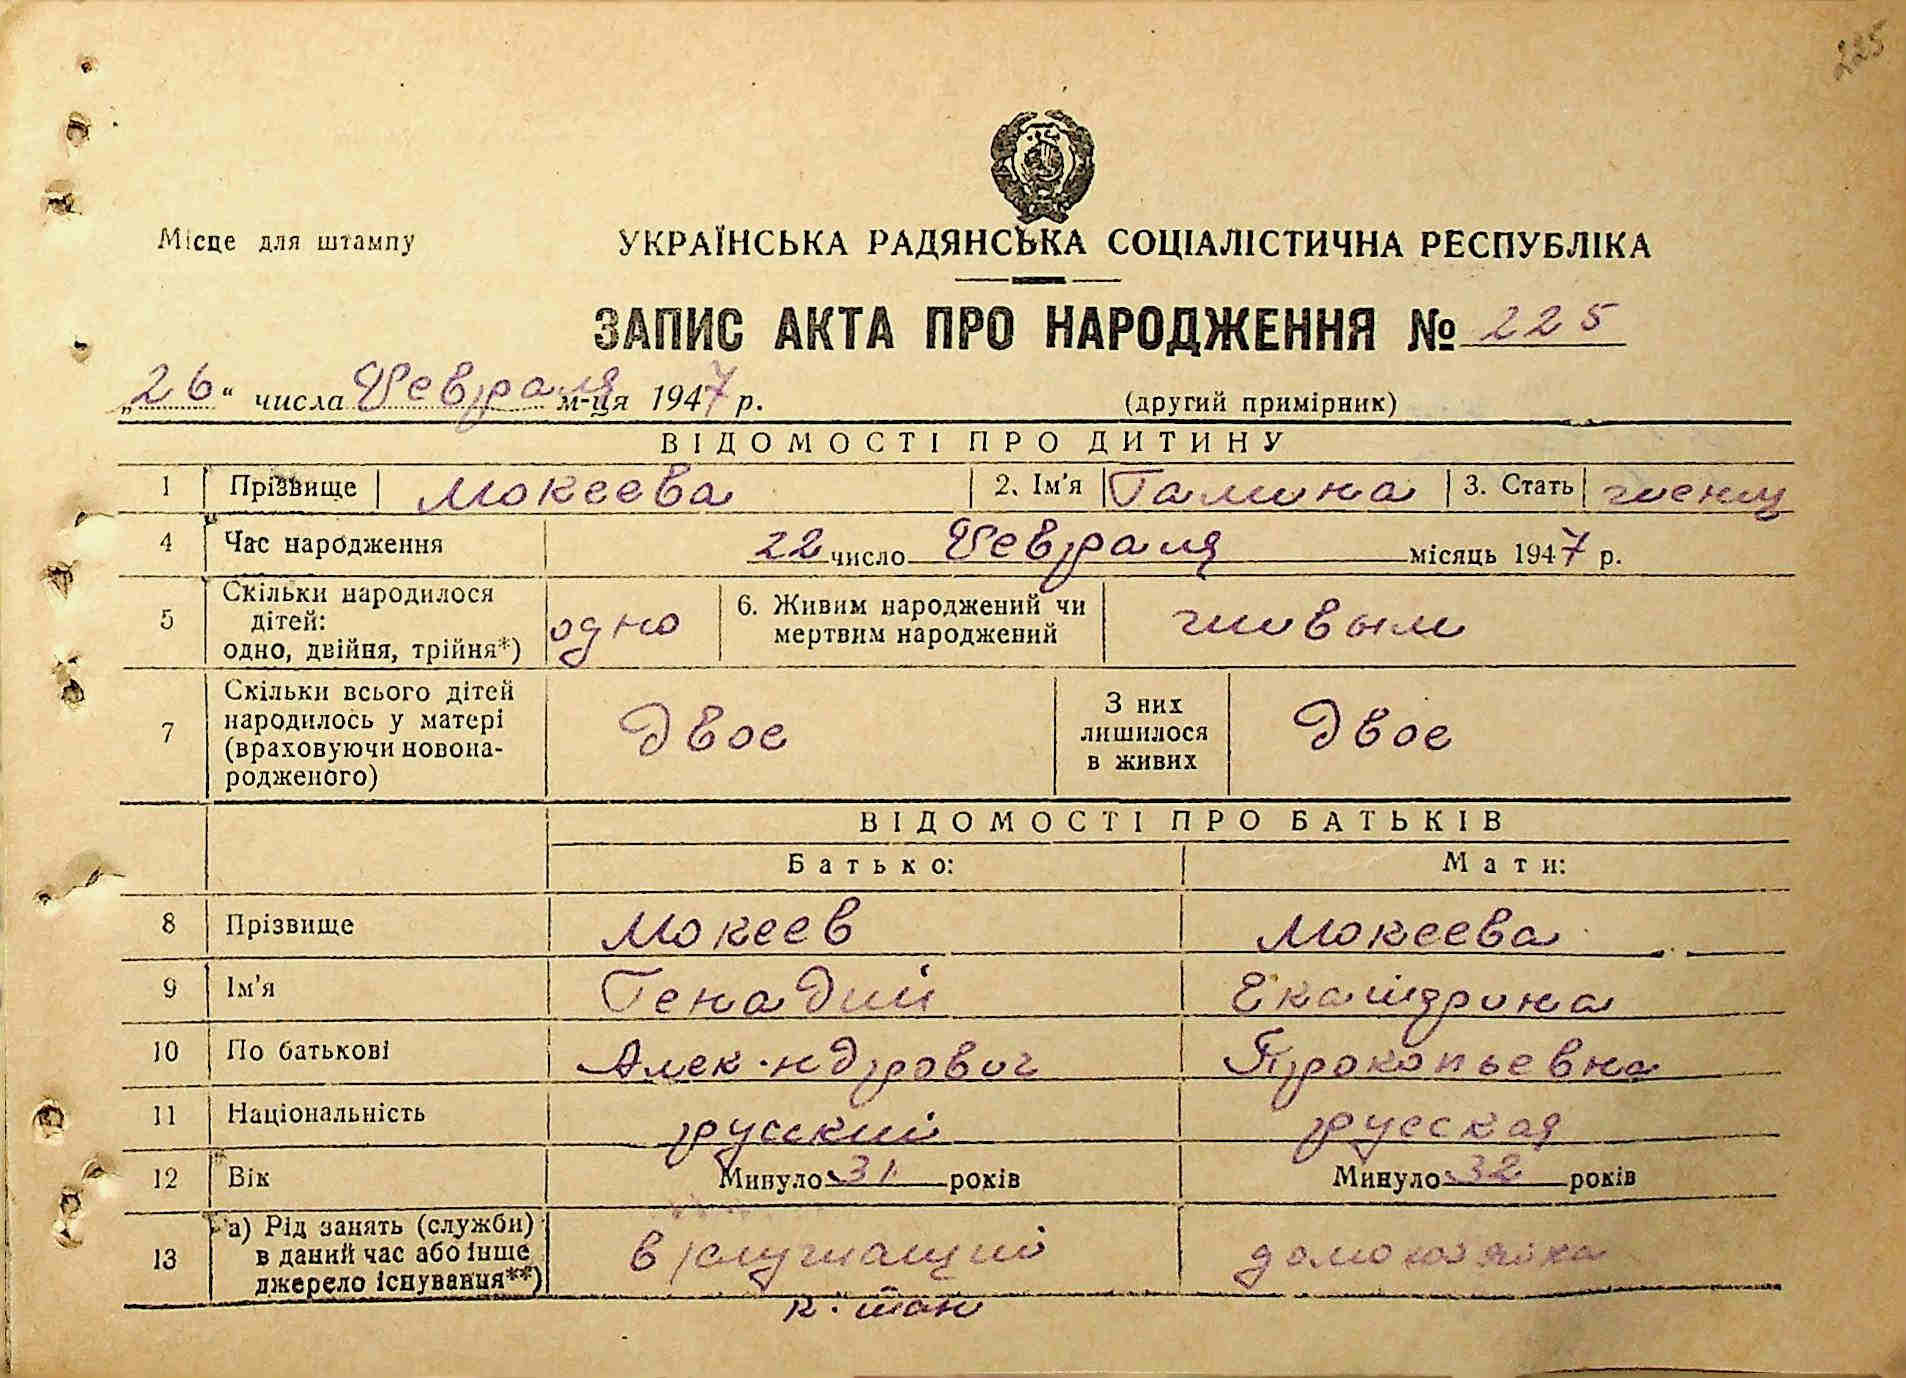 225
Місце для штампу
УКРАЇНСЬКА РАДЯНСЬКА СОЦІАЛІСТИЧНА РЕСПУБЛІКА
ЗАПИС АКТА ПРО НАРОДЖЕННЯ № 225
„26“ числа Февраля м-ця 1947 р. (другий примірник)
ВІДОМОСТІ ПРО ДИТИНУ
1 Прізвище Мокеева 2. Ім'я Галина 3. Стать женщ
4 Час народження 22 число Февраля місяць 1947 р.
5 Скільки народилося дітей: одно, двійня, трійня*) одно 6. Живим народжений чи мертвим народжений живым
7 Скільки всього дітей народилось у матері (враховуючи новонародженого) Двое З них лишилося в живих Двое
ВІДОМОСТІ ПРО БАТЬКІВ
Батько: Мати:
8 Прізвище Мокеев Мокеева
9 Ім'я Генадий Екатерина
10 По батькові Алек-ндрович Прокопьевна
11 Національність русский русская
12 Вік Минуло 31 років Минуло 32 років
13 а) Рід занять (служби) в даний час або інше джерело існування**) в/служащий домохозяйка